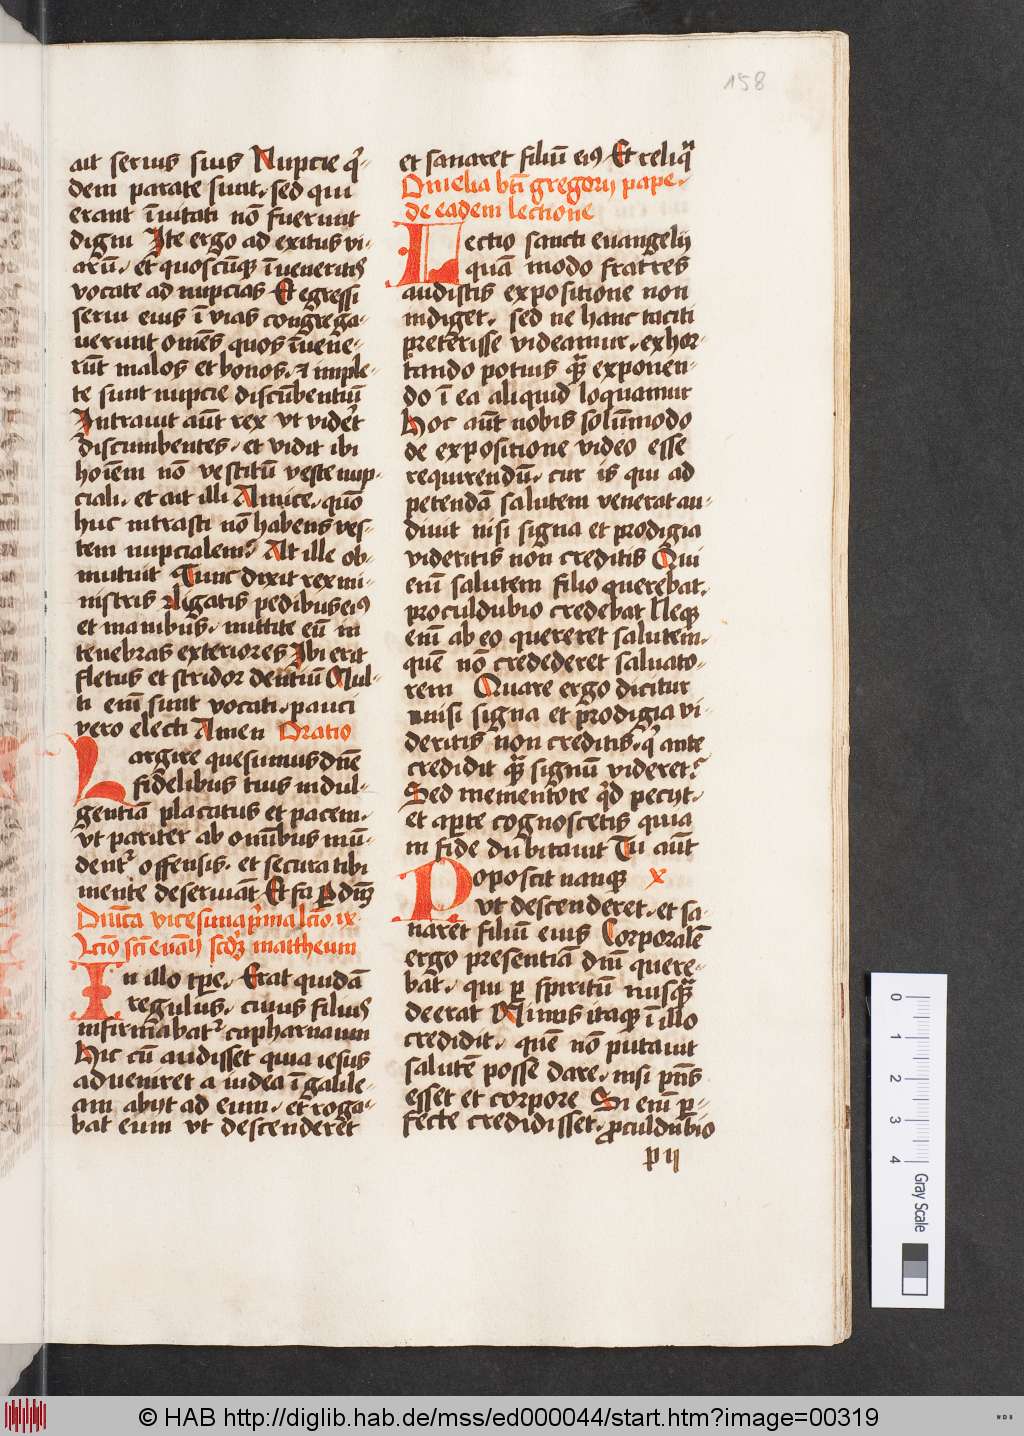 158
ait seruis suis Nupcie q͛-
dem parate sunt. sed qui
erant īuitati nō fuerunt
digni Ite ergo ad exitus vi-
arū. et quoscūqꝫ īueneritis
vocate ad nupcias Et egressi
serui eius ī vias congrega-
uerunt omēs quos īuene-
rūt malos et bonos. ⁊ imple-
te sunt nupcie discūbentiū
Intrauit aūt rex vt videret
discumbentes. et vidit ibi
hoīem nō vestitū veste nup-
ciali. et ait illi Amice. quō
huc intrasti nō habens ves-
tem nupcialem? At ille ob-
mutuit Tunc dixit rex mi-
nistris Ligatis pedibus eiꝰ
et manibus. mittite eū in
tenebras exteriores Ibi erit
fletus et stridor dentiū Mul-
ti enī sunt vocati. pauci
vero electi Amen Oratio
Largire quesumus dn̄e
fidelibus tuis indul-
gentiā placatus et pacem.
vt pariter ab omībus mū-
dentᷣ offensis. et secura tibi
mente deseruiāt Et fa ꝑ dn̄ꝫ
Dn̄ica vicesimaprima lcīo. ix.
Lcīo scī euāīj scd̄ꝫ mattheum
In illo tp̄e. Erat quidā
regulus. cuius filius
infirmabatᷣ capharnaum
Hic cū audisset quia iesus
adueniret a iudea ī galile-
am abijt ad eum. et roga-
bat eum vt descenderet
et sanaret filiū eiꝰ Et reliq̄
Omelia bt̄i gregorij pape.
de eadem lectione
Lectio sancti euangelij
quā modo fratres
audistis expositione non
indiget. sed ne hanc taciti
preterisse videamur. exhor-
tando potius qꝫ̄ exponen-
do ī ea aliquid loquamur
Hoc aūt nobis solūmodo
de expositione video esse
requirendū. cur is qui ad
petendā salutem venerat au-
diuit nisi signa et prodigia
videritis non creditis Qui
enī salutem filio querebat.
proculdubio credebat Neqꝫ
enī ab eo quereret salutem.
quē nō crederet saluato-
rem Quare ergo dicitur
nisi signa et prodigia vi-
deritis non creditis. q͛ ante
credidit qꝫ̄ signū videret?
Sed mementote qd̄ pecijt.
et aꝑte cognoscetis quia
in fide dubitauit Tu aūt
Poposcit nanqꝫ x
vt descenderet. et sa-
naret filiū eius Corporalē
ergo presentiā dn̄i quere-
bat. qui ꝑ spiritū nusqꝫ̄
deerat Minus itaqꝫ ī illo
credidit. quē nō putauit
salutē posse dare. nisi pn̄s
esset et corpore Si enī ꝑ-
fecte credidisset. ꝓculdubio
p ij
0 1 2 3 4
Gray Scale
© HAB http://diglib.hab.de/mss/ed000044/start.htm?image=00319